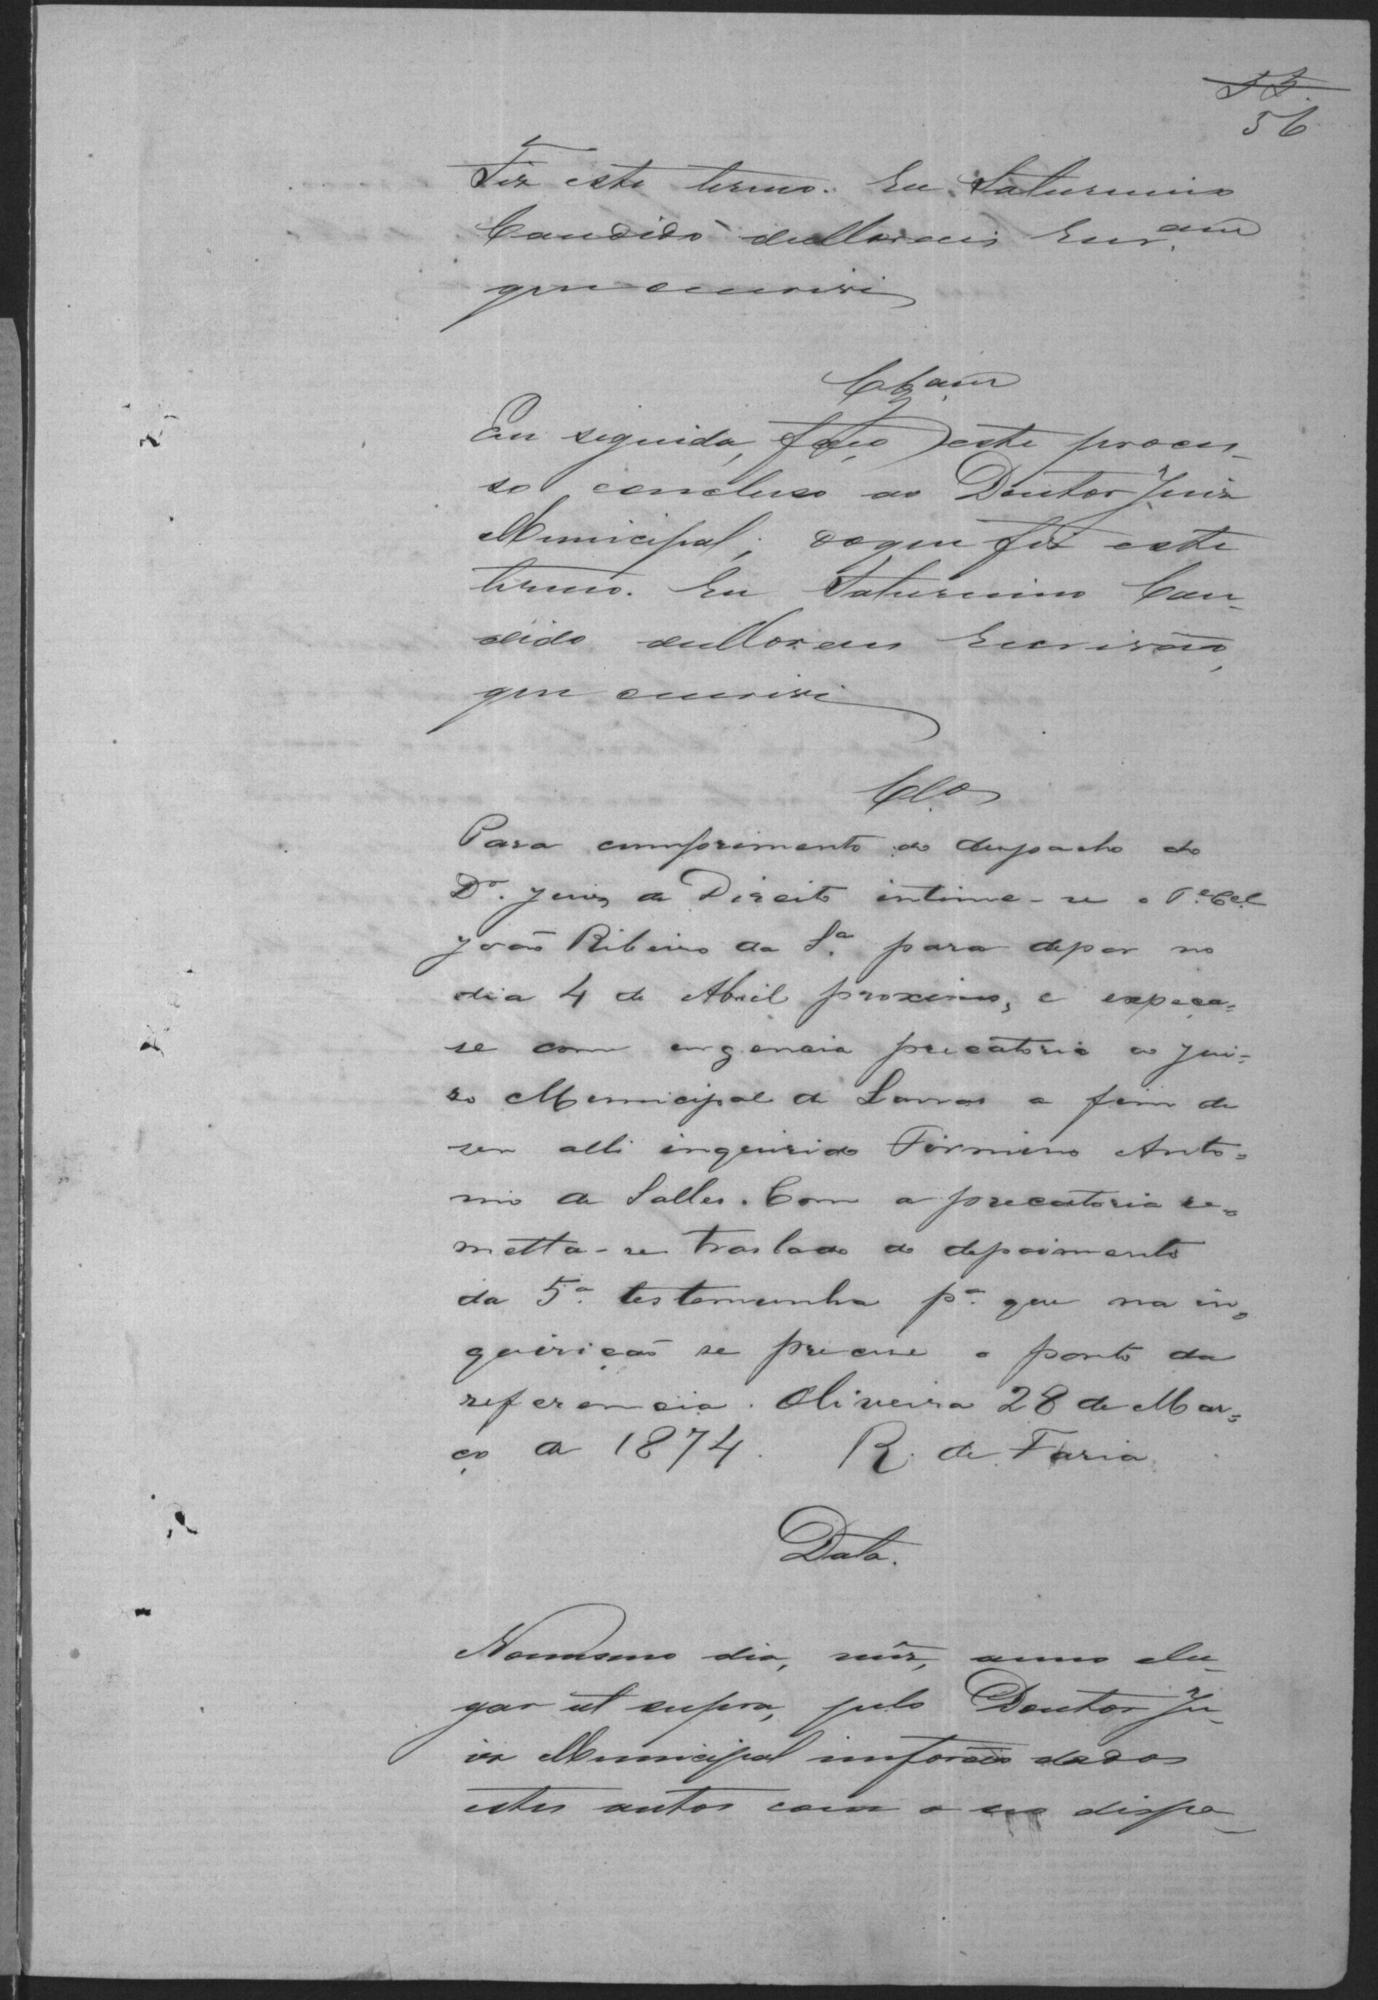 55.
56
Fiz este termo. Eu Saturnino
Candido de Moraes Escr.am
que escrevi
Clz.am
Em seguida, faço este proces-
so concluso ao Doutor Juiz
Municipal; doque fiz este
termo. Eu Saturnino Can-
dido de Moraes Escrivão,
que escrevi
Cl.os
Para cumprimento do despacho do
D.r Juiz de Direito intime-se o T.e C.el
João Ribeiro da S.a para depor no
dia 4 de Abril proximo, e expeça-
se com urgencia precatoria ao Jui-
so Municipal de Lavras a fim de
ser alli inquirido Firmino Anto-
nio de Salles. Com a precatoria re-
metta-se traslado do depoimento
da 5.a testemunha p.a que na in-
quirição se precise o ponto da
referencia. Oliveira 28 de Mar-
ço de 1874. R. de Faria
Data.
Nomesmo dia, mêz, anno elu-
gar ut supra, pelo Doutor Ju-
iz Municipal imforão dados
estes autos com o seo dispa-